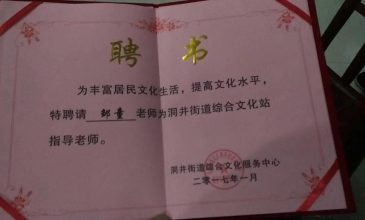 聘书
为丰富居民文化生活，提高文化水平，
特聘请 邹童 老师为洞井街道综合文化站
指导老师。
洞井街道综合文化服务中心
二零一七年一月